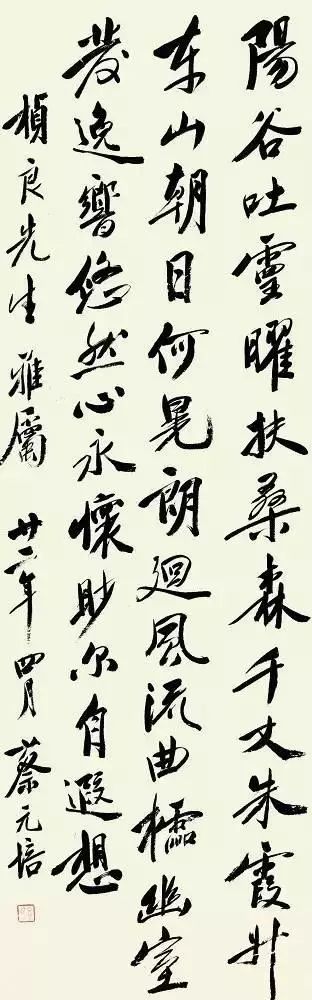 陽谷吐靈曜扶桑森千丈朱霞升
東山朝日何晃朗迴風流曲櫺幽室
發逸響悠然心永懷眇尔自遐想
楨良先生 雅屬 廿二年四月 蔡元培